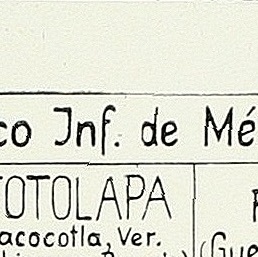 co Inf. de Mé
TOTOLAPA
acocotla, Ver.
(Gue